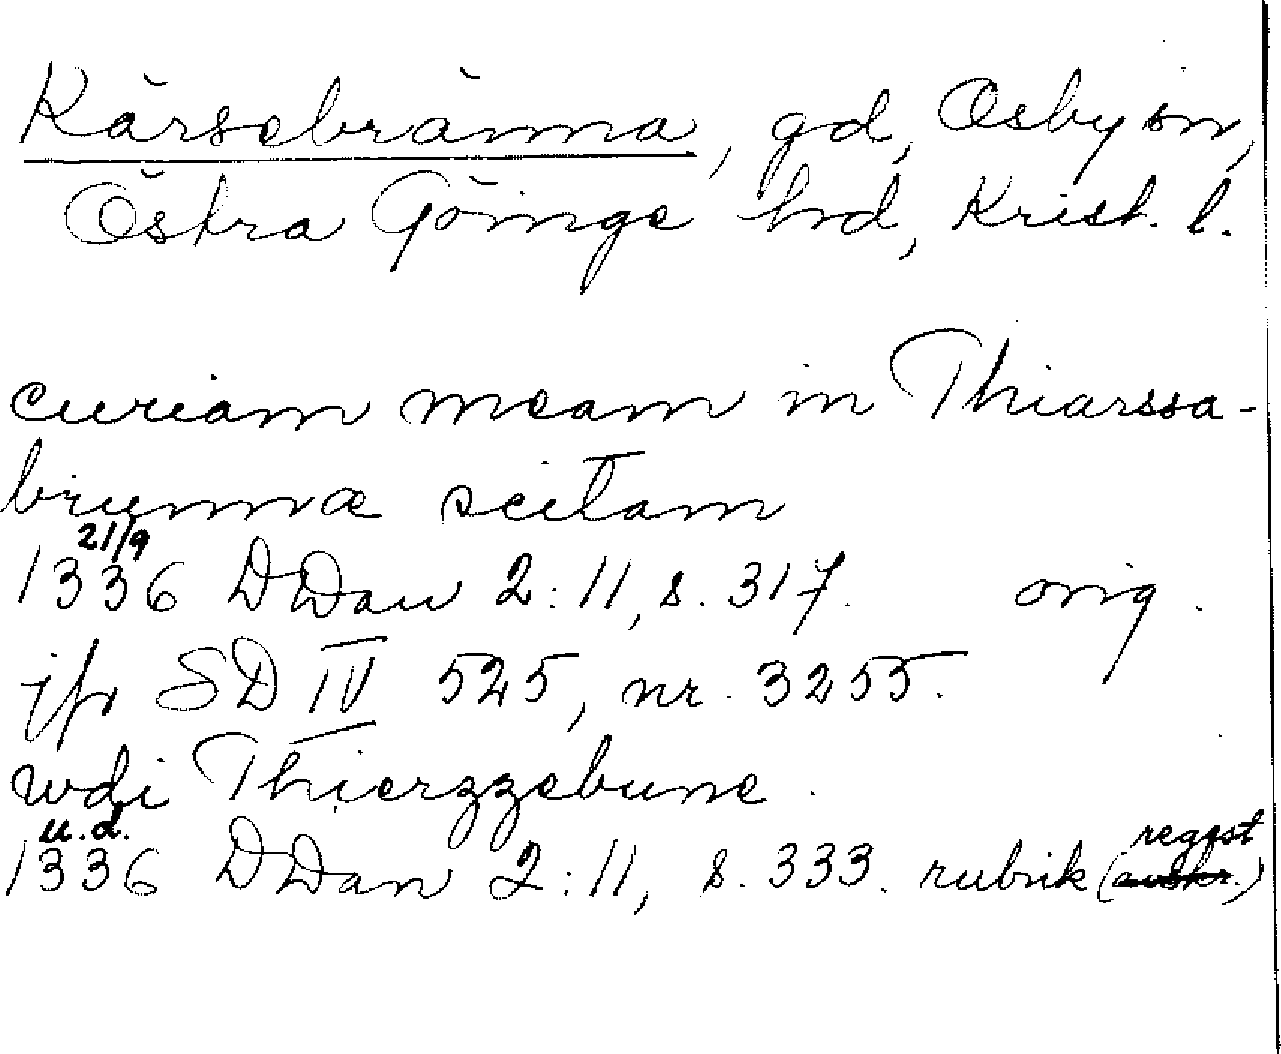 Kärsebränna, gd, Osby sn,
Östra Göinge hrd, Krist. l.
curiam meam in Thiarssa-
brunnæ scitam
21/9
1336 DDan 2:11, s. 317. orig.
jfr SD IV 525, nr. 3255.
wdi Thierzzebune.
u.d.
1336 DDan 2:11, s. 333. rubrik (avskr.) regest